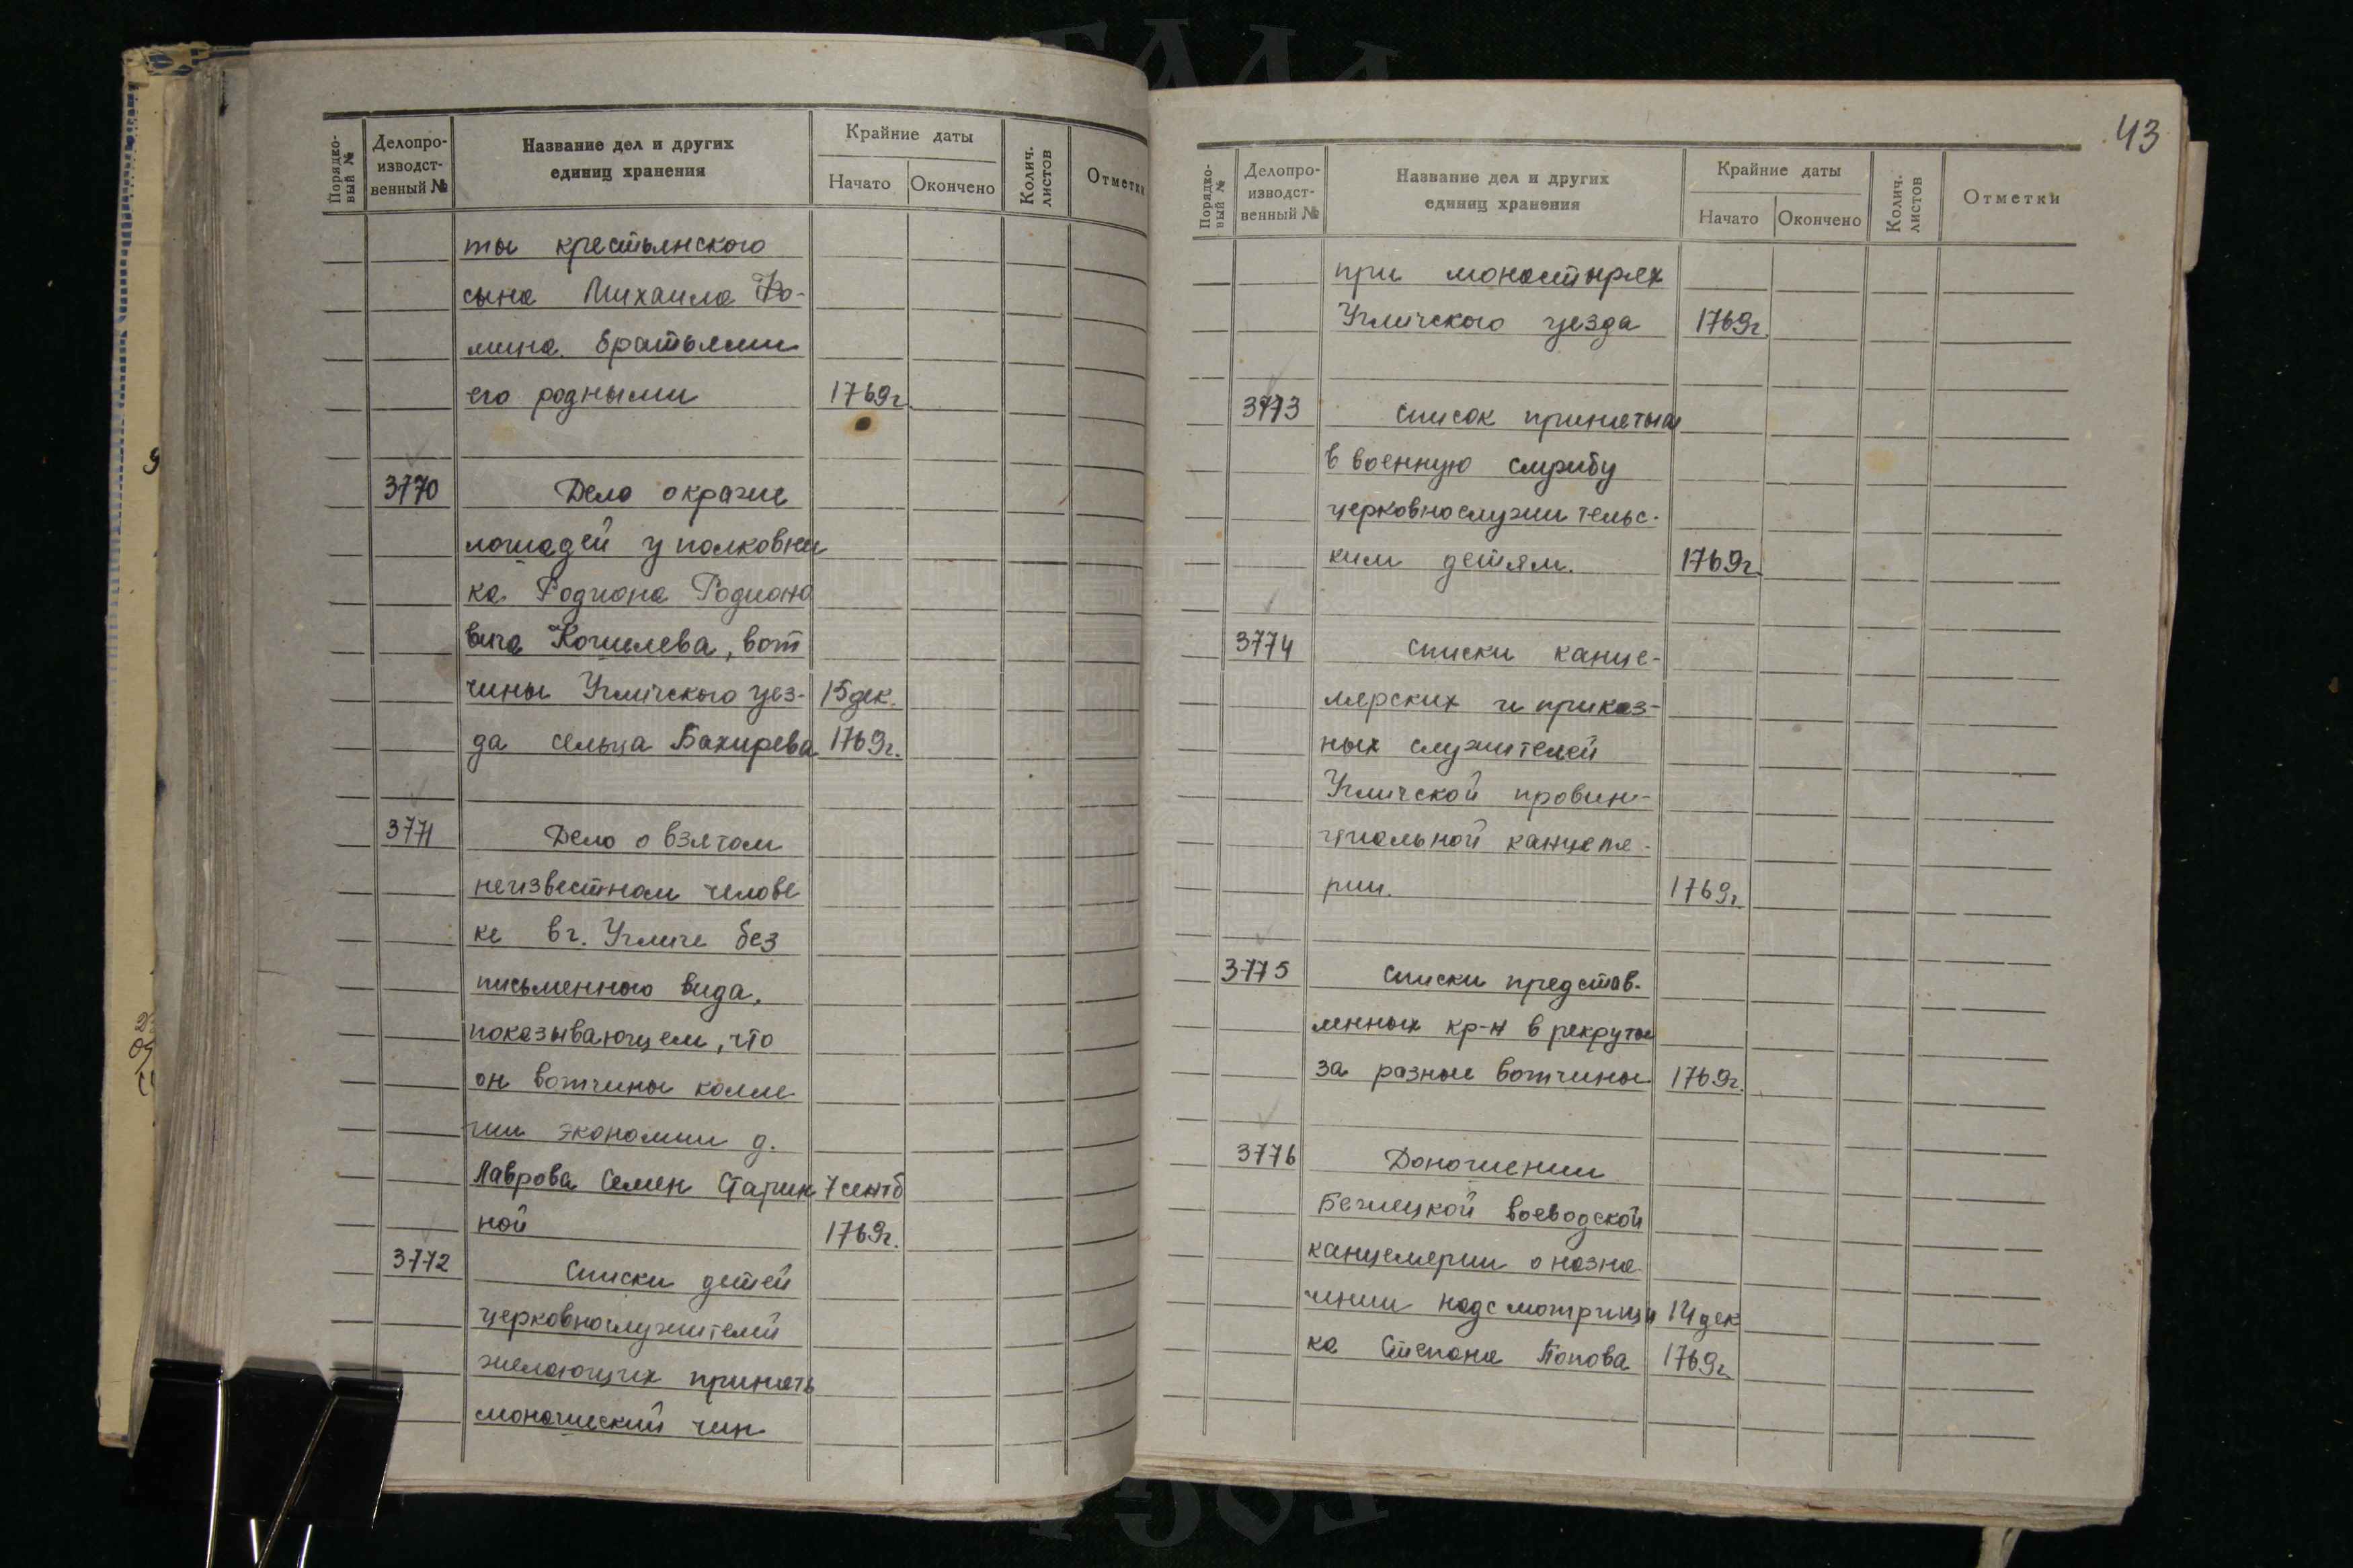 Порядко-
вый №
Делопро-
изводст-
венный №
Название дел и других
единиц хранения
Крайние даты
Начато
Окончено
Колич.
листов
Отметки
ты крестьянского
сына Михаила Фо-
мина братьями
его родными 1769г
3770 Дело о краже
лошадей у полковни
ка Родиона Родионо
вича Кошелева, вот
чины Угличского уез- 15 дек.
да сельца Бахирева 1769г.
3771 Дело о взятом
неизвестном челове
ке в г. Угличе без
письменного вида,
показывающем, что
он вотчины колле
гии экономии д.
Лаврова Семен Старин 7 сентб
ной 1769г.
3772 Списки детей
церковнослужителей
желающих принять
монашеский чин
43
Порядко-
вый №
Делопро-
изводст-
венный №
Название дел и других
единиц хранения
Крайние даты
Начато
Окончено
Колич.
листов
Отметки
при монастырях
Угличского уезда 1769г.
3773 Список принятых
в военную службу
церковнослужительс-
ким детям. 1769г.
3774 Списки канце-
лярских и приказ-
ных служителей
Угличской провин-
циальной канцеля-
рии. 1769г.
3775 Списки представ-
ленных кр-н в рекруты
за разные вотчины 1769г.
3776 Доношении
Бежецкой воеводской
канцелярии о назна-
чении надсмотрщи 14 дек
ка Степана Попова 1769г.